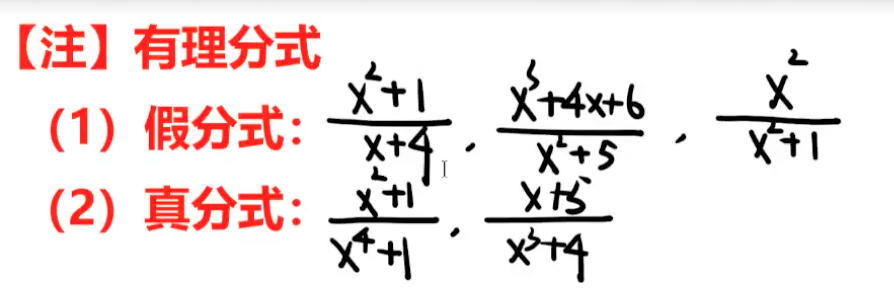 【注】有理分式
（1）假分式：(x²+1)/(x+4)，(x³+4x+6)/(x²+5)，x²/(x²+1)
（2）真分式：(x²+1)/(x⁴+1)，(x+5)/(x³+4)